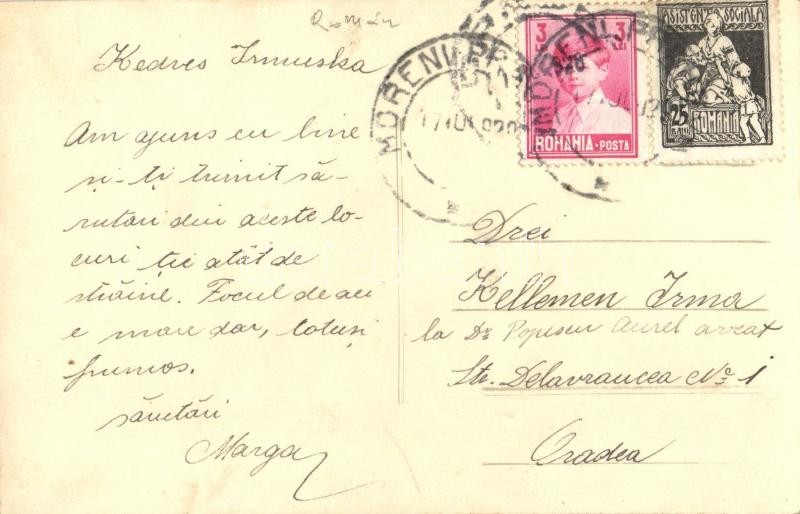 Român
Kedves Irmuska
Am ajuns cu bine
și-ți trimit să-
rutări din aceste lo-
curi ție atât de
străine. Focul de aci
e mare dar, totuși
frumos.
sărutări
Marga
MORENI
17 IUL 929
3 LEI 3
ROMANIA·POSTA
MORENI
17 IUL 929
ASISTENȚA SOCIALĂ
25
BANI
ROMANIA
Drei
Kellemen Irma
la Dr Popescu Aurel avocat
Str. Delavrancea No 1
Oradea